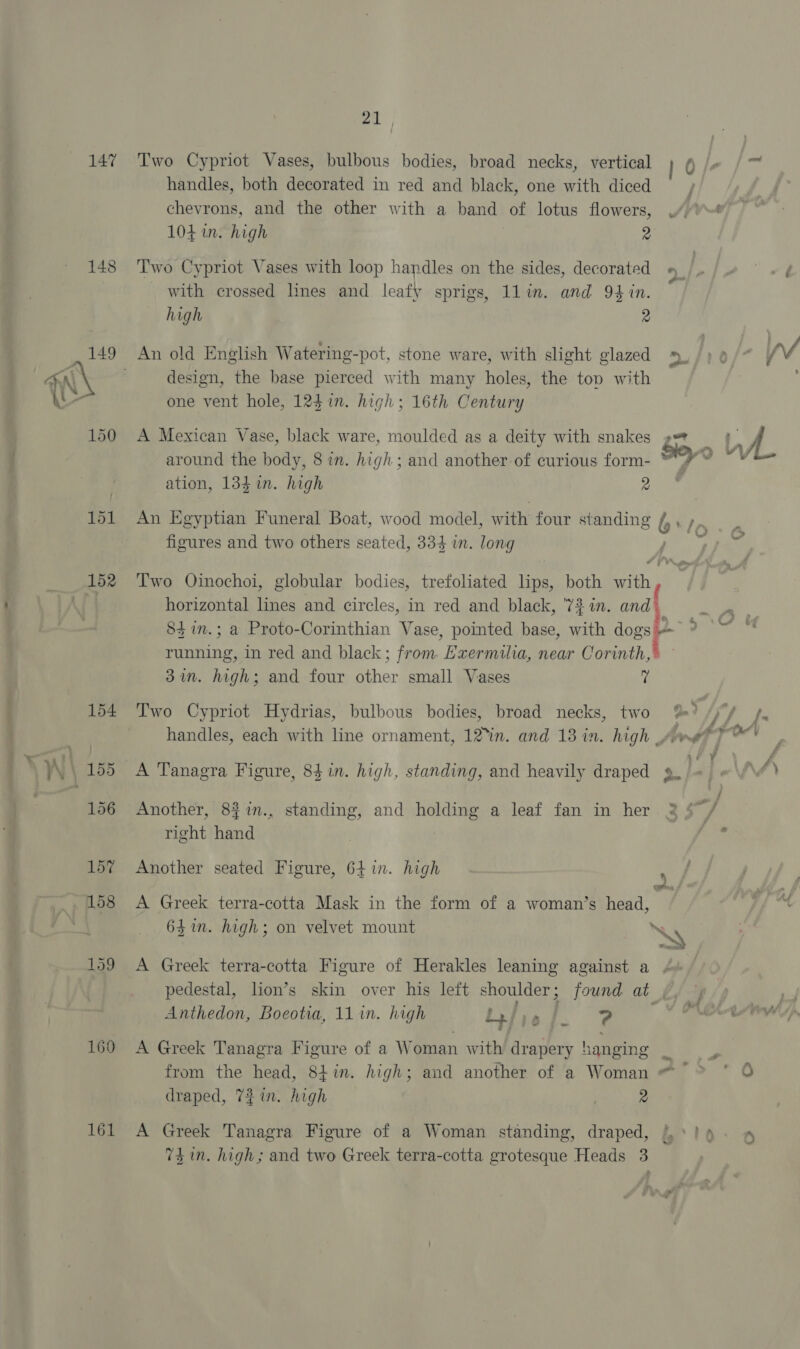 21
147 Two Cypriot Vases, bulbous bodies, broad necks, vertical
handles, both decorated in red and black, one with diced
chevrons, and the other with a band of lotus flowers,
10½ in. high 2
148 Two Cypriot Vases with loop handles on the sides, decorated
with crossed lines and leafy sprigs, 11 in. and 9½ in.
high 2
149 An old English Watering-pot, stone ware, with slight glazed
design, the base pierced with many holes, the top with
one vent hole, 12½ in. high; 16th Century
150 A Mexican Vase, black ware, moulded as a deity with snakes
around the body, 8 in. high; and another of curious form-
ation, 13½ in. high 2
151 An Egyptian Funeral Boat, wood model, with four standing
figures and two others seated, 33½ in. long
152 Two Oinochoi, globular bodies, trefoliated lips, both with
horizontal lines and circles, in red and black, 7¾ in. and
8½ in.; a Proto-Corinthian Vase, pointed base, with dogs
running, in red and black; from Exermilia, near Corinth,
3 in. high; and four other small Vases 7
154 Two Cypriot Hydrias, bulbous bodies, broad necks, two
handles, each with line ornament, 12 in. and 13 in. high
155 A Tanagra Figure, 8½ in. high, standing, and heavily draped
156 Another, 8¾ in., standing, and holding a leaf fan in her
right hand
157 Another seated Figure, 6¼ in. high
158 A Greek terra-cotta Mask in the form of a woman's head,
6½ in. high; on velvet mount
159 A Greek terra-cotta Figure of Herakles leaning against a
pedestal, lion's skin over his left shoulder; found at
Anthedon, Boeotia, 11 in. high
160 A Greek Tanagra Figure of a Woman with drapery hanging
from the head, 8¼ in. high; and another of a Woman
draped, 7¾ in. high 2
161 A Greek Tanagra Figure of a Woman standing, draped,
7½ in. high; and two Greek terra-cotta grotesque Heads 3